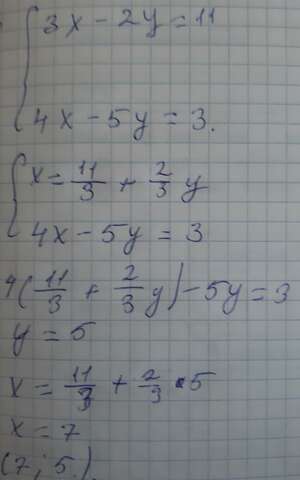 3x - 2y = 11
4x - 5y = 3.
x = 11/3 + 2/3 y
4x - 5y = 3
4(11/3 + 2/3 y) - 5y = 3
y = 5
x = 11/3 + 2/3 · 5
x = 7
(7; 5).